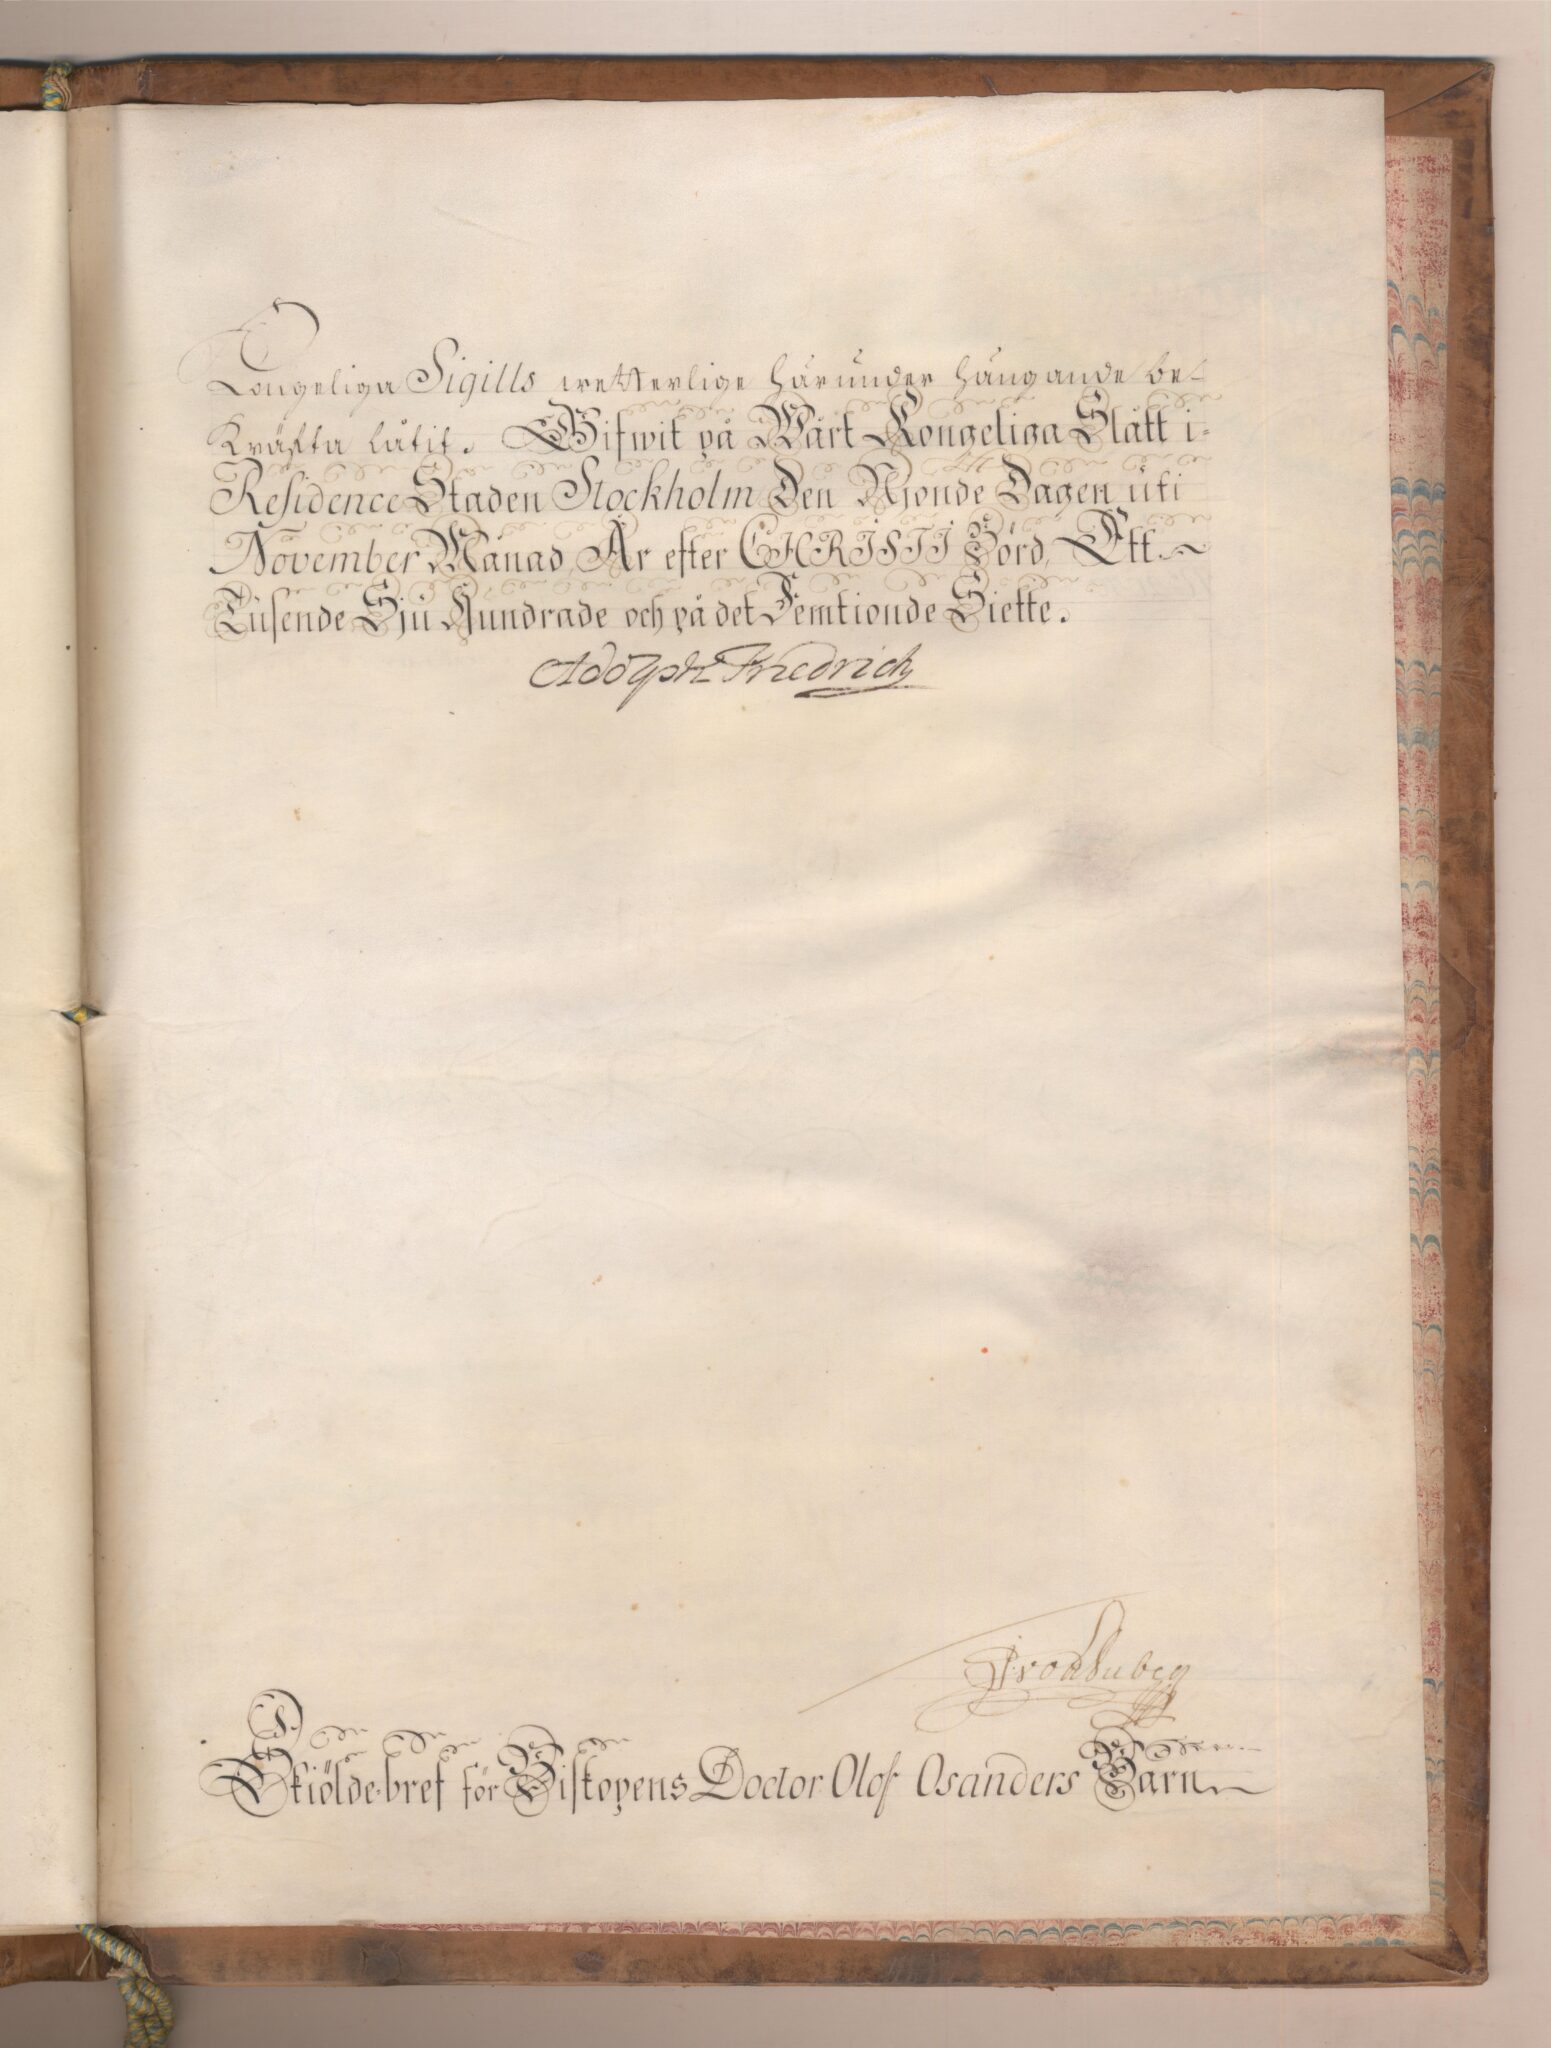 Kongeliga Sigills wetterlige härunder hängande be-
kräfta låtit. Gifwit på Wårt Kongeliga Slått i
Residence Staden Stockholm Den Njonde Dagen uti
November Månad, År efter CHRISTI Börd, Ett
Tusende Sju Hundrade och på det Femtionde Siette.
Adolph Friedrich
Skiölde-bref för Biskopens Doctor Olof Osanders Barn